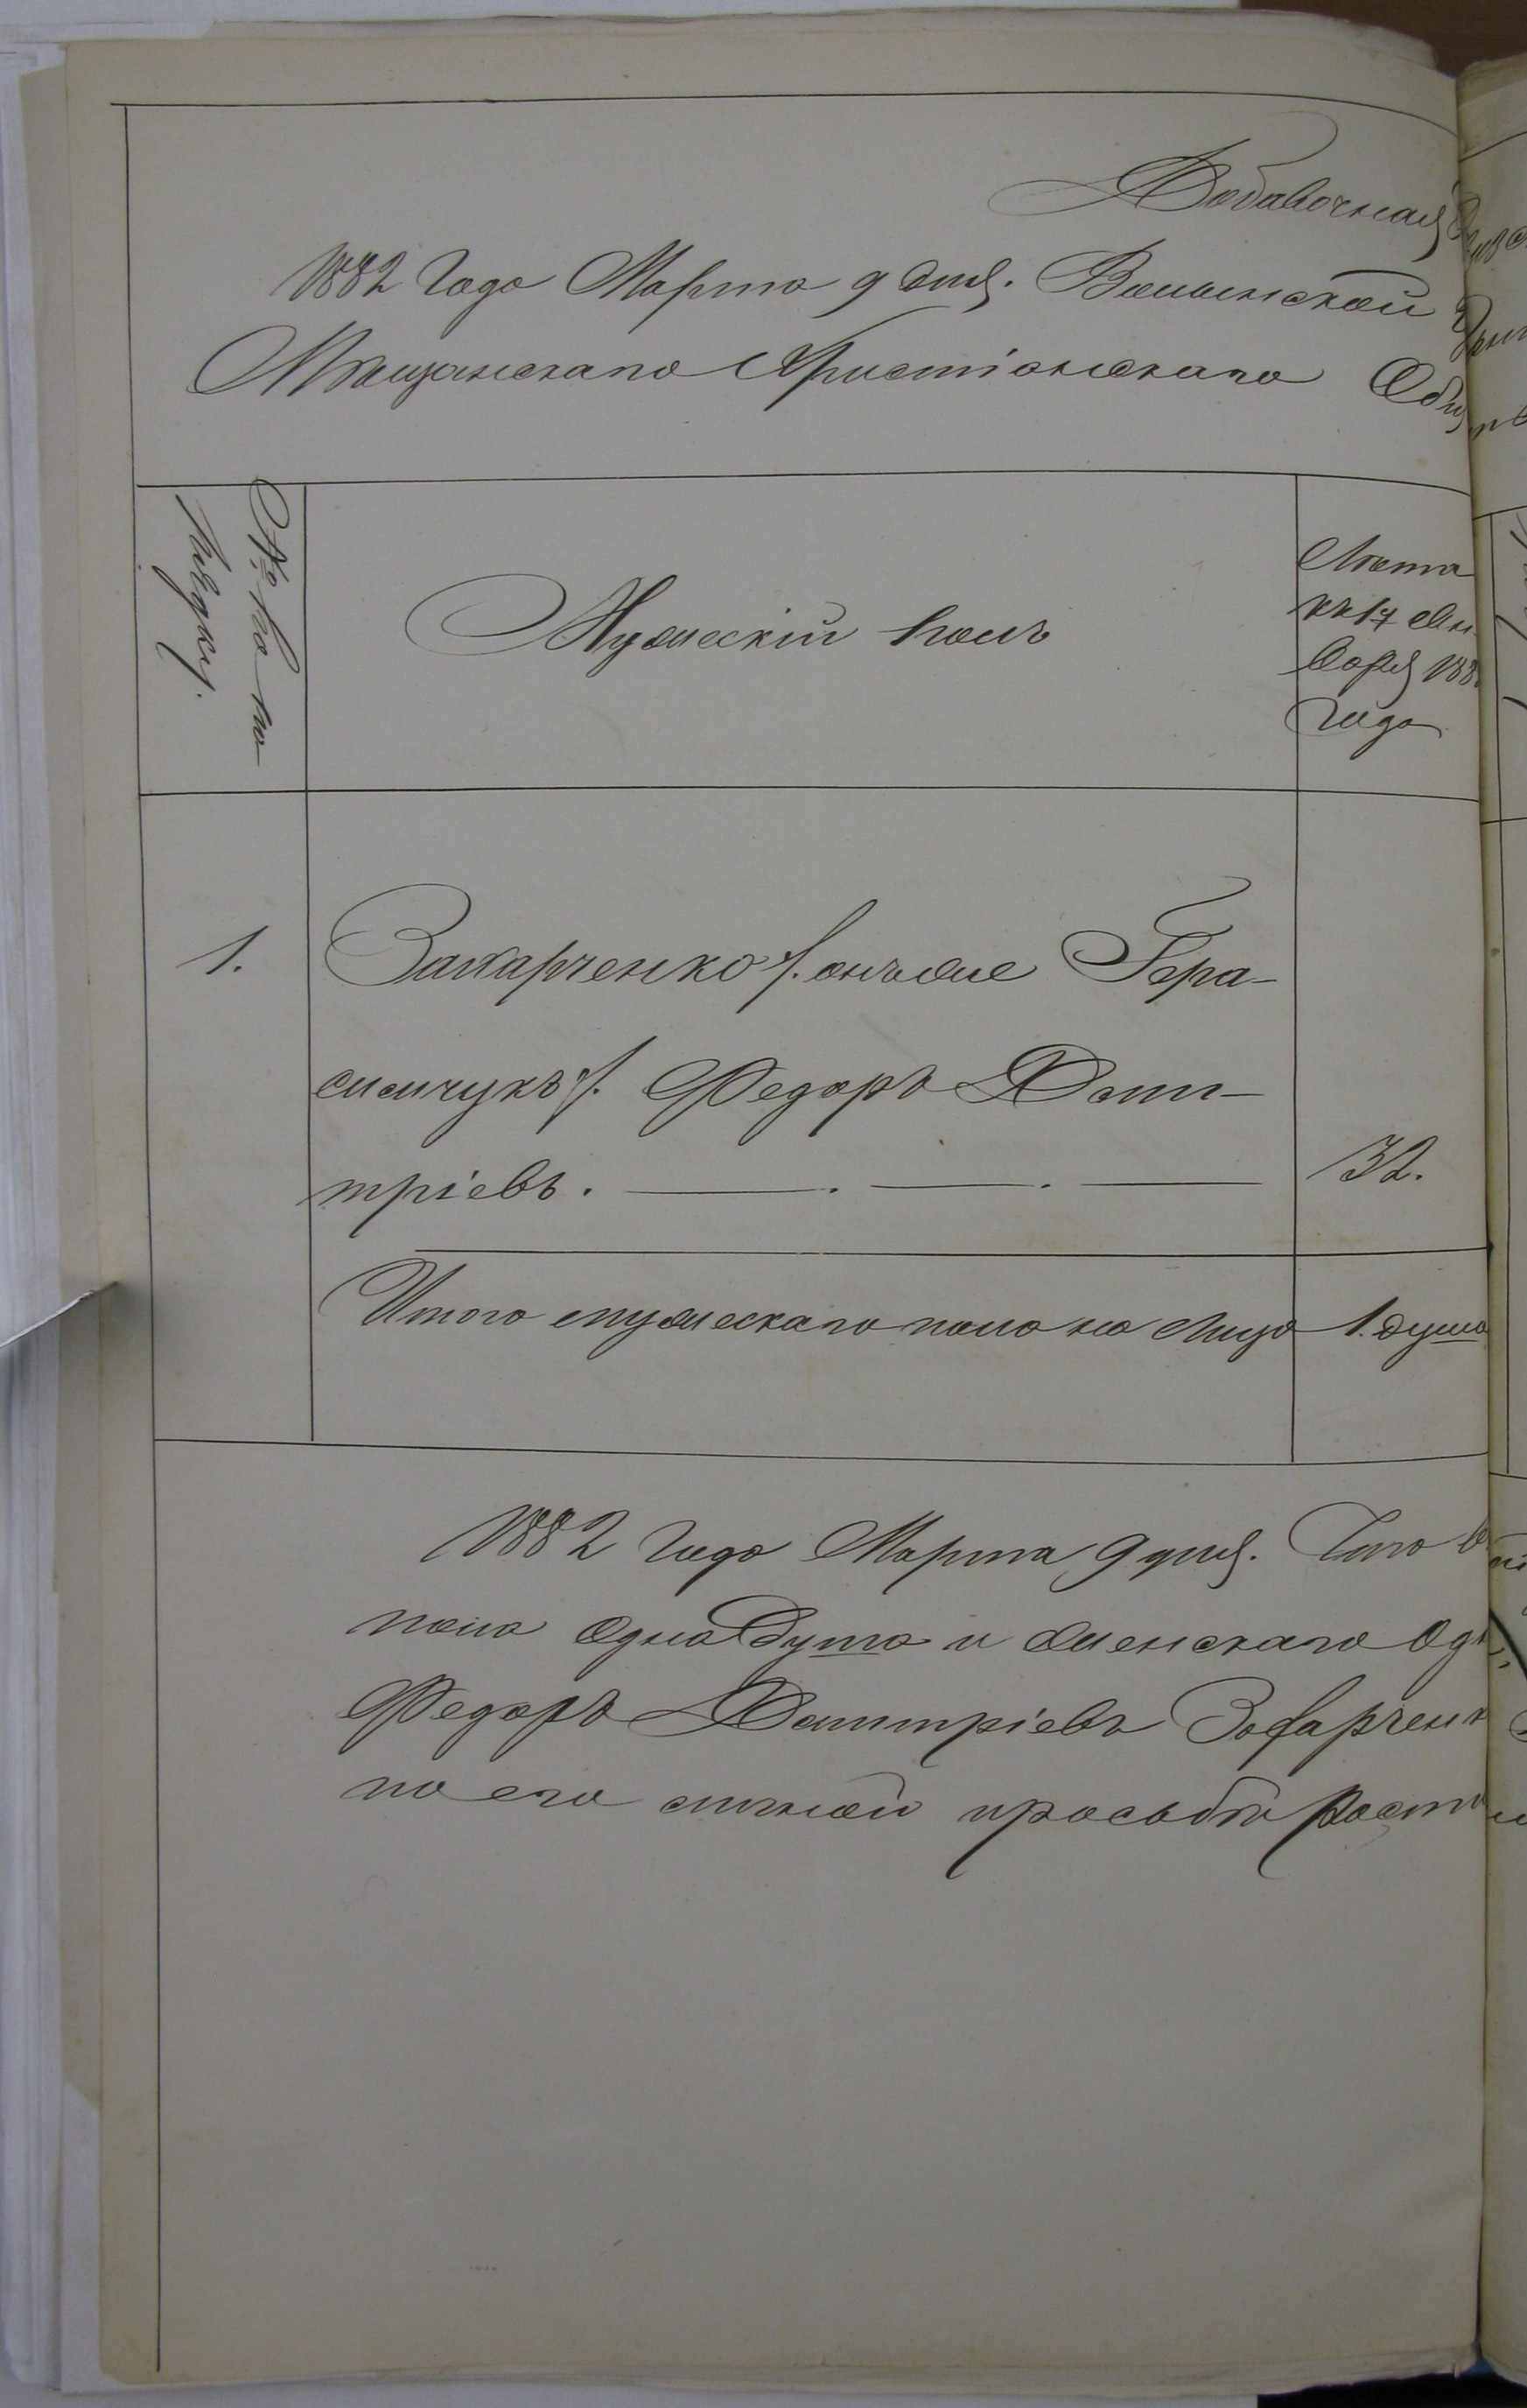 Добавочная
1882 года Марта 9 дня. Волынской
Мѣщанскаго Христіанскаго Общ
№ по по
рядку.
Мужескій полъ
Лѣта
къ 17 Ян
варя 188
года
1.
Захарченко /: онъ же Гера-
симчукъ /: Федоръ Дми-
тріевъ. — . — . —
32.
Итого мужескаго пола на лицо
1. душа
1882 года Марта 9 дня. Что в
пола одна душа и женскаго од
Федоръ Дмитріевъ Захарченк
по его личной просьбѣ